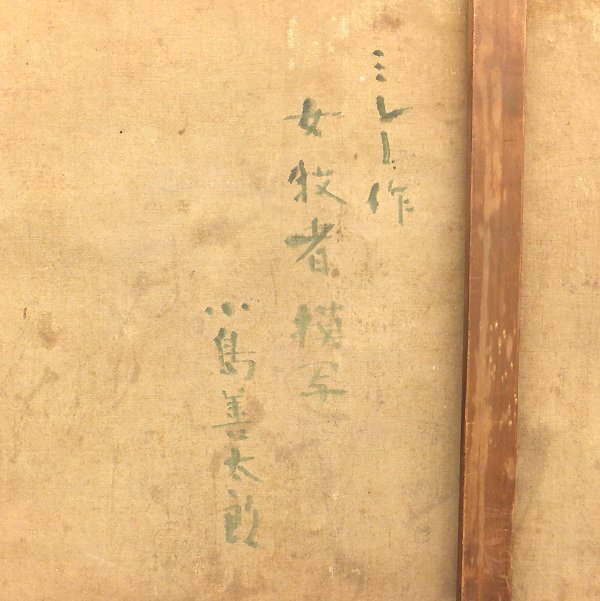 ミレー作
女牧者模写
小島善太郎